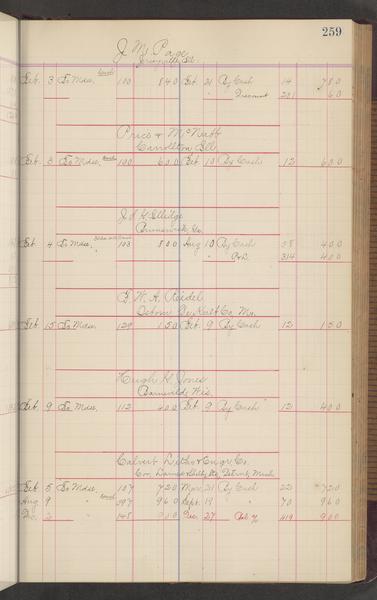 259
J. M. Page
Jerseyville, Ill.
Feb. 3 To Mdse. 100 840 Feb. 21 By Cash 14 780
Discount 201 60
Price & McNabb
Carrollton Ill
Feb. 3 To Mdse. 100 600 Feb. 10 By Cash 12 600
Brunswick, Ga.
Feb. 4 To Mdse. 103 800 Aug 10 By Cash 58 400
" P&L 314 400
F. W. A. Reidel
Co, Mo.
Feb. 15 To Mdse. 129 150 Feb. 9 By Cash 12 150
Hugh H. Jones
Wis
Feb. 9 To Mdse. 112 400 Feb. 9 By Cash 12 400
Calvert Litho & Engr. Co.
Cor. Larned & Detroit, Mich
Feb. 5 To Mdse. 107 720 Mar. 21 By Cash 22 720
Aug 9 " 397 960 Sept. 19 " 70 960
Dec. 2 " 148 900 Dec. 27 419 900